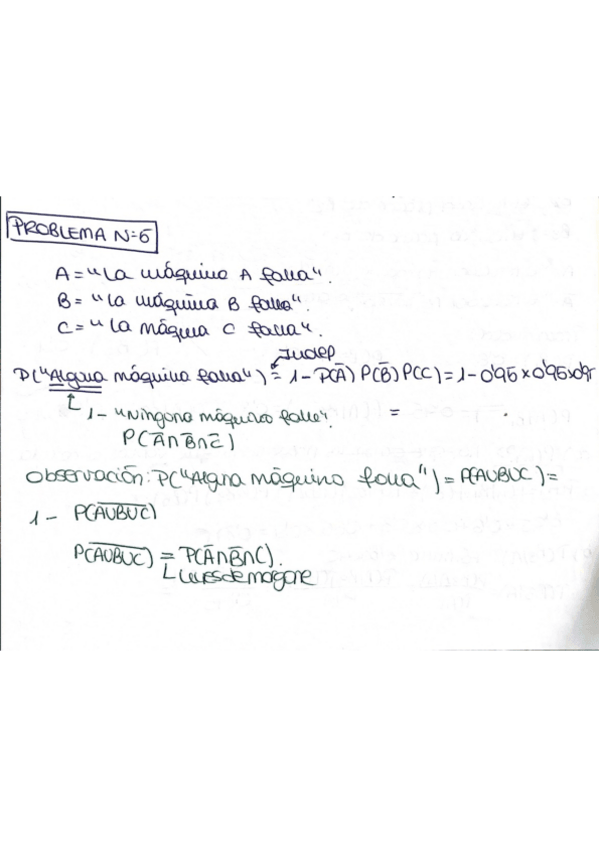 PROBLEMA N=6
A = "La máquina A falla".
B = "La máquina B falla".
C = "La máqina C falla".
Indep
P("Algna máquina falla") = 1 - P(Ā) P(B̄) P(C) = 1 - 0'95 x 0'95 x 0'95
1 - "Ninguna máquina falle". = .
P(Ā∩B̄∩C̄)
Observación: P("Algna máquina falla") = P(AUBUC) =
1 - P(A̅U̅B̅U̅C̅)
P(A̅U̅B̅U̅C̅) = P(Ā∩B̄∩C).
Leyes de mogare